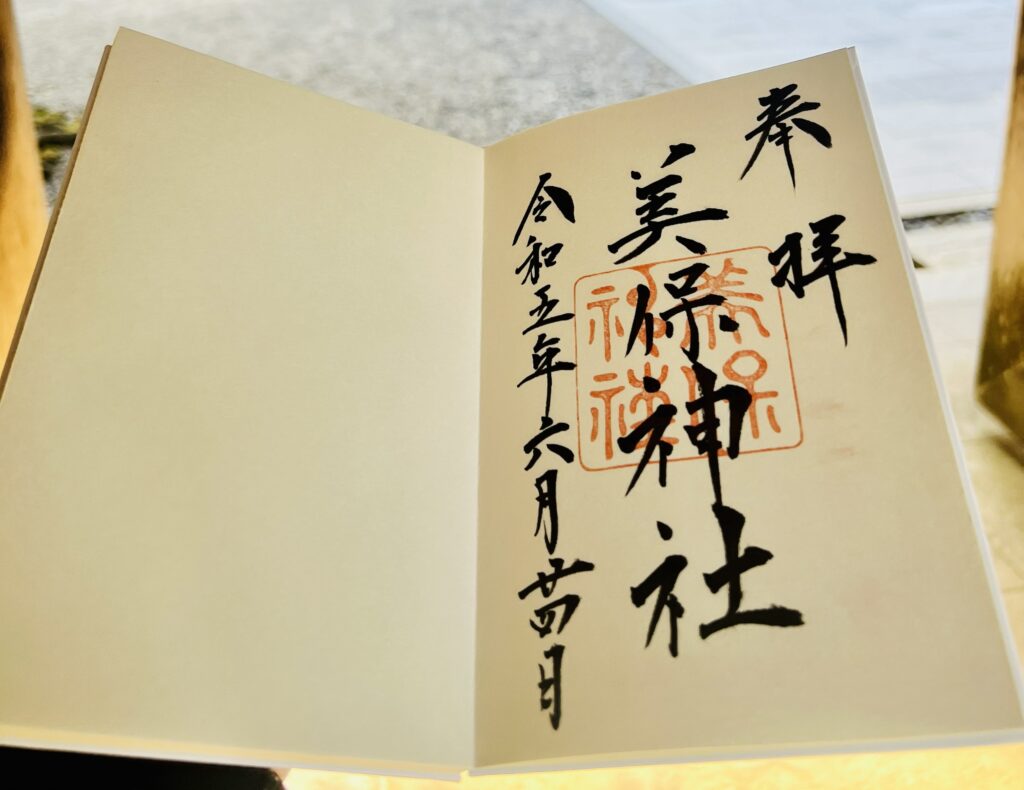 奉拝
美保神社
美保神社
令和五年六月廿四日